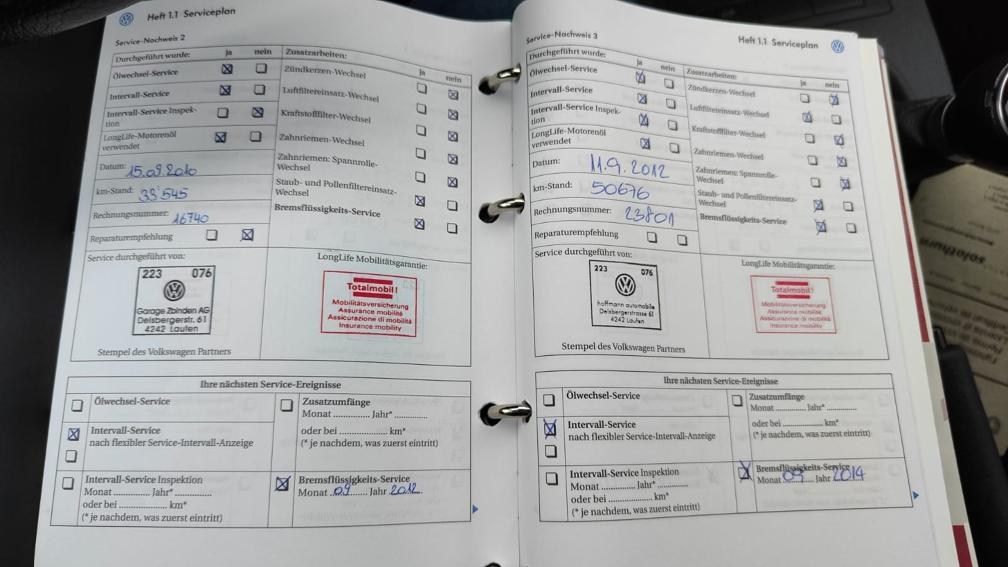 Heft 1.1 Serviceplan
Service-Nachweis 2
Durchgeführt wurde: ja nein
Ölwechsel-Service
Intervall-Service
Intervall-Service Inspek-
tion
LongLife-Motorenöl
verwendet
Datum: 15.09.2010
km-Stand: 38'545
Rechnungsnummer: 16740
Reparaturempfehlung
Zusatzarbeiten: ja nein
Zündkerzen-Wechsel
Luftfiltereinsatz-Wechsel
Kraftstofffilter-Wechsel
Zahnriemen-Wechsel
Zahnriemen: Spannrolle-
Wechsel
Staub- und Pollenfiltereinsatz-
Wechsel
Bremsflüssigkeits-Service
Service durchgeführt von:
223 076
Garage Zbinden AG
Delsbergerstr. 61
4242 Laufen
Stempel des Volkswagen Partners
LongLife Mobilitätsgarantie:
Totalmobil!
Mobilitätsversicherung
Assurance mobilité
Assicurazione di mobilità
Insurance mobility
Ihre nächsten Service-Ereignisse
Ölwechsel-Service
Intervall-Service
nach flexibler Service-Intervall-Anzeige
Intervall-Service Inspektion
Monat ............ Jahr* .............
oder bei .................. km*
(* je nachdem, was zuerst eintritt)
Zusatzumfänge
Monat ............ Jahr* .............
oder bei .................. km*
(* je nachdem, was zuerst eintritt)
Bremsflüssigkeits-Service
Monat 09 Jahr 2012
Heft 1.1 Serviceplan
Service-Nachweis 3
Durchgeführt wurde: ja nein
Ölwechsel-Service
Intervall-Service
Intervall-Service Inspek-
tion
LongLife-Motorenöl
verwendet
Datum: 11.9.2012
km-Stand: 50676
Rechnungsnummer: 23801
Reparaturempfehlung
Zusatzarbeiten: ja nein
Zündkerzen-Wechsel
Luftfiltereinsatz-Wechsel
Kraftstofffilter-Wechsel
Zahnriemen-Wechsel
Zahnriemen: Spannrolle-
Wechsel
Staub- und Pollenfiltereinsatz-
Wechsel
Bremsflüssigkeits-Service
Service durchgeführt von:
223 076
hoffmann automobile
Delsbergerstrasse 61
4242 Laufen
Stempel des Volkswagen Partners
LongLife Mobilitätsgarantie:
Totalmobil!
Mobilitätsversicherung
Assurance mobilité
Assicurazione di mobilità
Insurance mobility
Ihre nächsten Service-Ereignisse
Ölwechsel-Service
Intervall-Service
nach flexibler Service-Intervall-Anzeige
Intervall-Service Inspektion
Monat ............ Jahr* .............
oder bei .................. km*
(* je nachdem, was zuerst eintritt)
Zusatzumfänge
Monat ............ Jahr* .............
oder bei .................. km*
(* je nachdem, was zuerst eintritt)
Bremsflüssigkeits-Service
Monat 09 Jahr 2014
solothurn